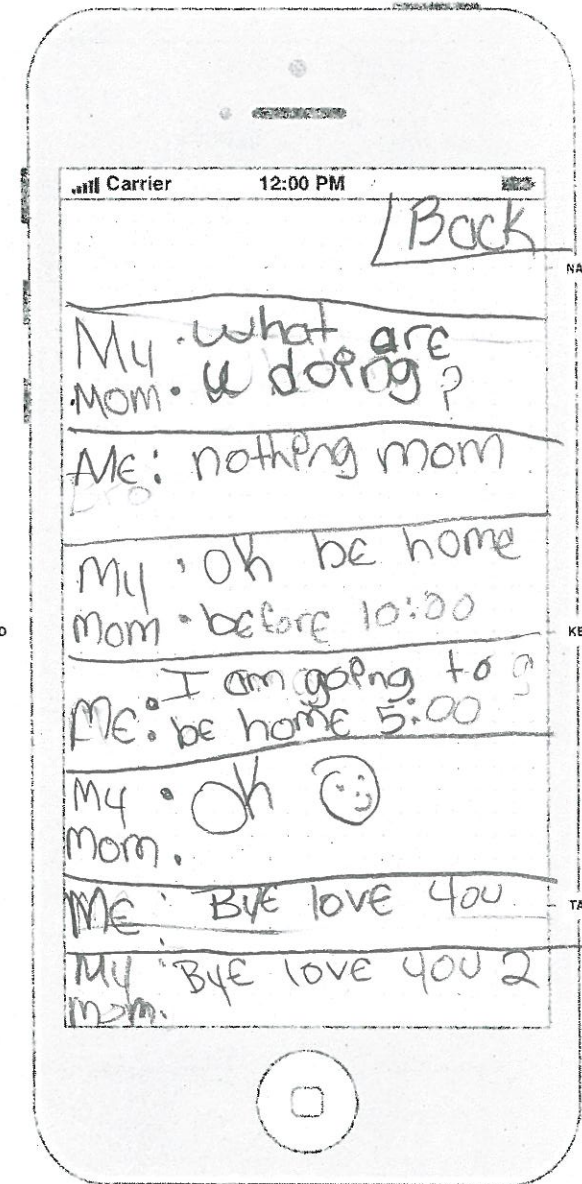 Carrier 12:00 PM
Back
NA
My Mom: what are
u doing?
ME: nothing mom
My mom: Oh be home
before 10:00
D
KE
ME: I am going to
be home 5:00
My mom: Oh
ME: BYE love you
TA
My mom: BYE love you 2